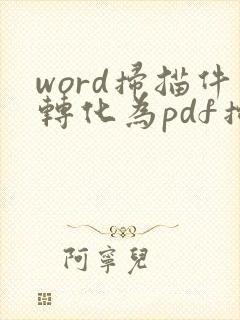 word掃描件
轉化為pdf
阿寧兒